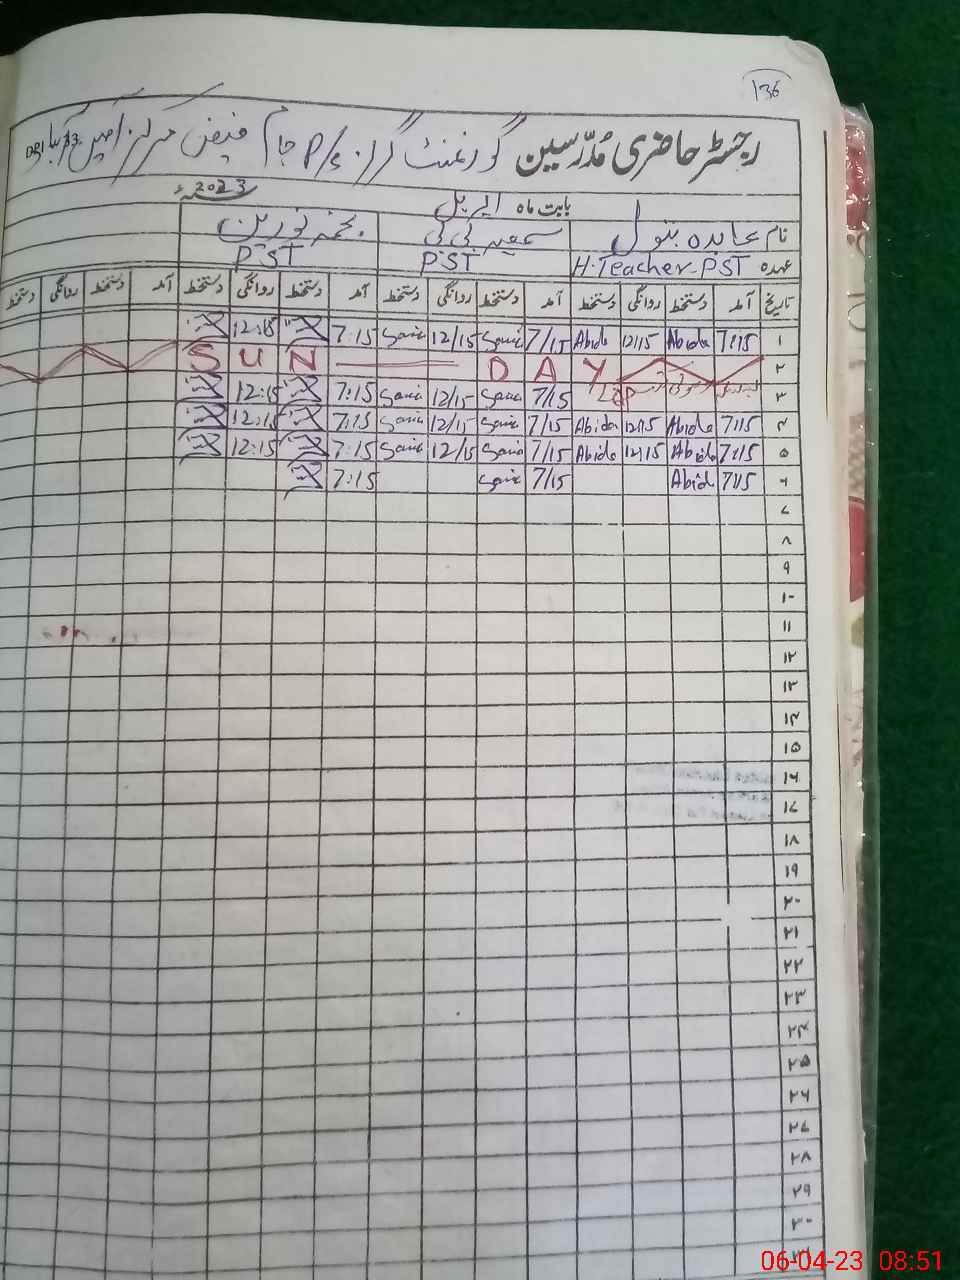 136
رجسٹر حاضری مُدرّسین گورنمنٹ گرلز P/S جام فیض
بابت ماہ اپریل 2023ء
نام عابدہ بتول نجمہ نورین
عہدہ H.Teacher-PST PST PST
تاریخ آمد دستخط روانگی دستخط آمد دستخط روانگی دستخط آمد دستخط روانگی دستخط آمد دستخط روانگی دستخط
۱ 7:15 Abida 12:15 Abida 7/15 12/15 7:15 12:15
۲ SUN DAY
۳ 7/15 12/15 7:15 12:15
۴ 7:15 Abida 12:15 Abida 7/15 12/15 7:15 12:15
۵ 7:15 Abida 12:15 Abida 7/15 12/15 7:15 12:15
۶ 7:15 Abida 7/15 7:15
۷
۸
۹
۱۰
۱۱
۱۲
۱۳
۱۴
۱۵
۱۶
۱۷
۱۸
۱۹
۲۰
۲۱
۲۲
۲۳
۲۴
۲۵
۲۶
۲۷
۲۸
۲۹
۳۰
۳۱
06-04-23 08:51